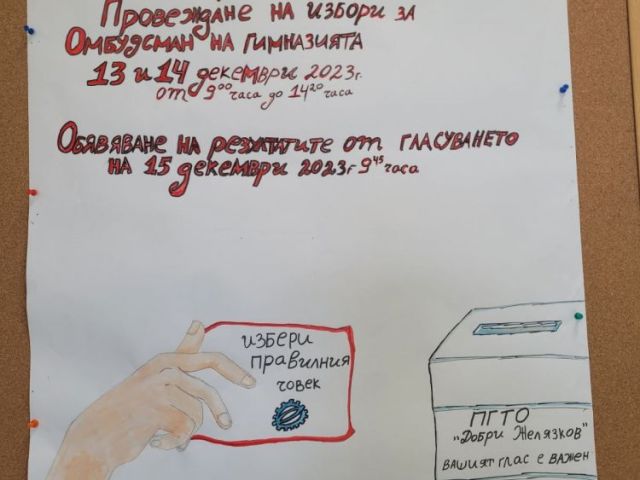 Провеждане на избори за
Омбудсман на гимназията
13 и 14 декември 2023г.
от 9⁰⁰ часа до 14²⁰ часа
Обявяване на резултатите от гласуването
на 15 декември 2023г 9⁴⁵ часа
избери
правилния
човек
ПГТО
„Добри Желязков"
вашият глас е важен